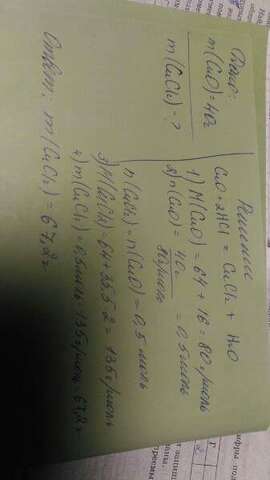 Дано:
m(CuO) = 40г
m(CuCl₂) - ?
Решение
CuO + 2HCl = CuCl₂ + H₂O
1) M(CuO) = 64 + 16 = 80 г/моль
2) n(CuO) = 40г / 80г/моль = 0,5 моль
n(CuCl₂) = n(CuO) = 0,5 моль
3) M(CuCl₂) = 64 + 35.5 · 2 = 135 г/моль
4) m(CuCl₂) = 0,5 моль · 135 г/моль = 67,2 г
Ответ: m(CuCl₂) = 67,2 г